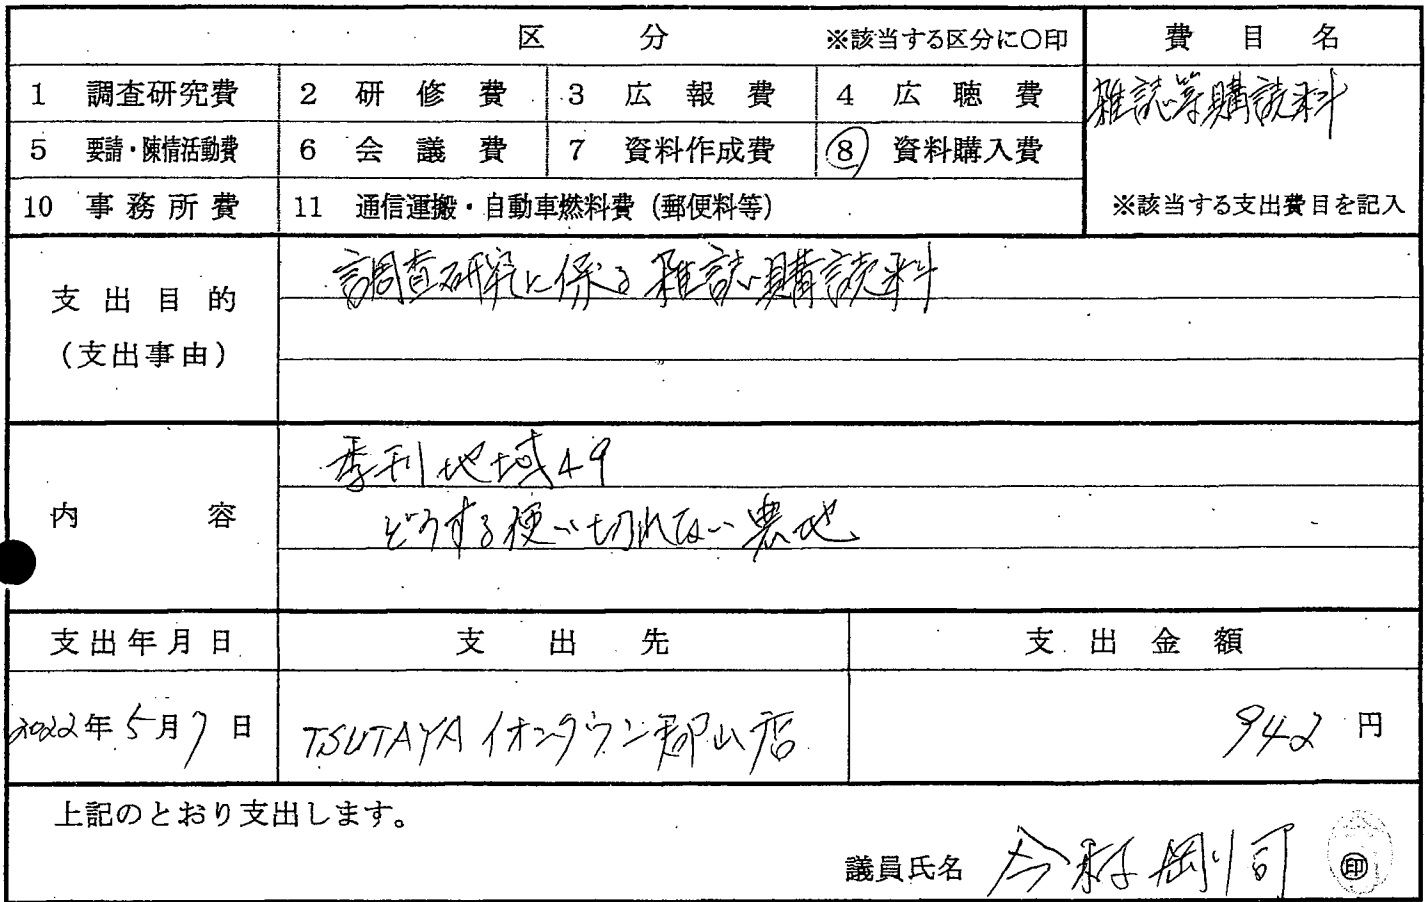 区 分 ※該当する区分に○印 費 目 名
1 調査研究費 2 研 修 費 3 広 報 費 4 広 聴 費 雑誌等購読料
5 要請・陳情活動費 6 会 議 費 7 資料作成費 ⑧ 資料購入費
10 事務所費 11 通信運搬・自動車燃料費(郵便料等) ※該当する支出費目を記入
支出目的
(支出事由)
調査研究に係る雑誌購読料
内 容
季刊地域49
どうする使い切れない農地
支出年月日 支 出 先 支 出 金 額
2022年5月7日 TSUTAYAイオンタウン郡山店 942 円
上記のとおり支出します。
議員氏名 今村剛司 ㊞